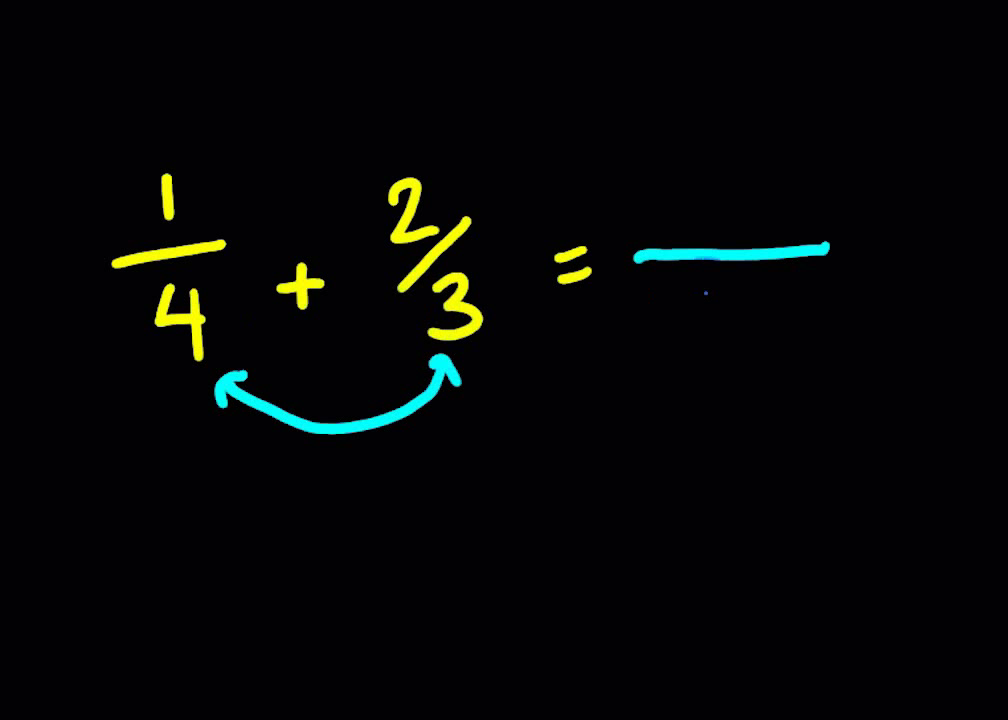 1/4 + 2/3 =